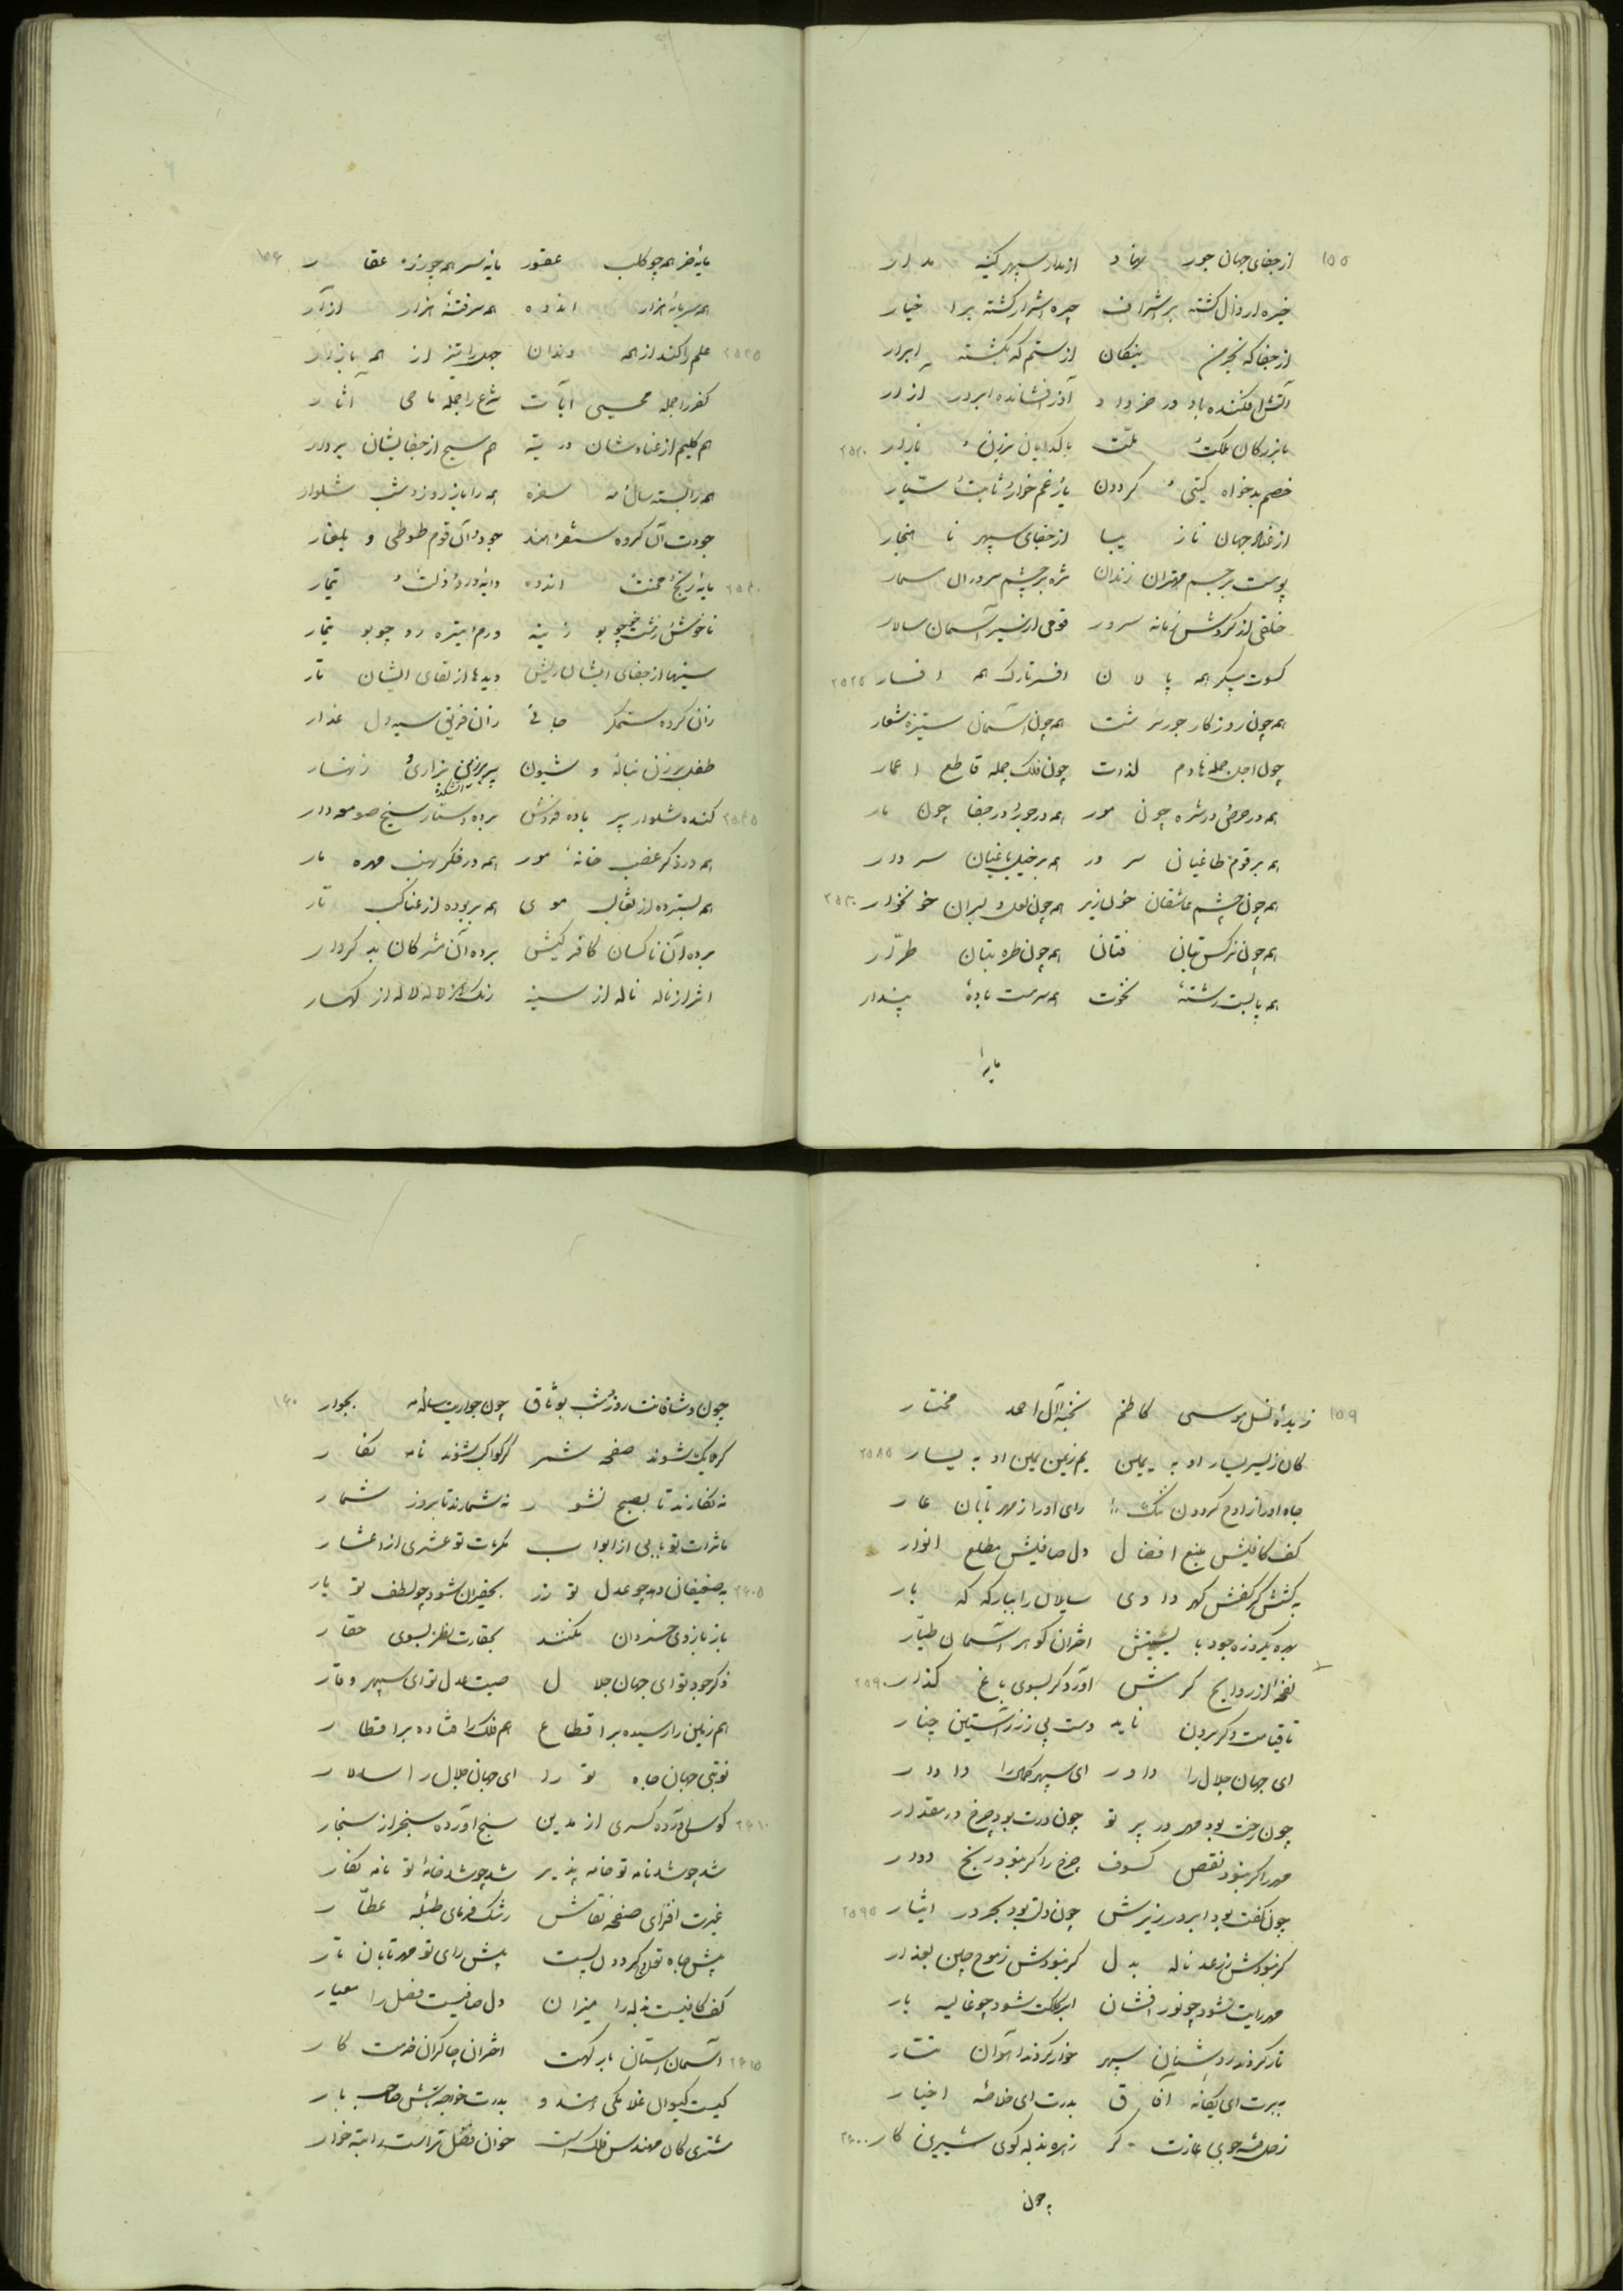 ۱۵۵
از جفای جهان جور نهاد از مدار سپهر کینه مدار
خیره ارذال گشته بر اشراف چیره اشرار گشته بر اخیار
از جفا که نیکان از ستم که نگشته ابرار
آتش افکنده باد در خرداد آذر افشانده ابر در آزار
با بزرگان ملک و ملت با گدایان برزن و بازار ۲۵۲۰
خصم بدخواه گیتی و گردون یار غمخوار ثابت و سیار
از جهان نازیبا از جفای سپهر ناهنجار
پوست بر جسم مهتران زندان مژه بر چشم سروران مسمار
خلقی از گردش زمانه سرور قومی از سیر آسمان سالار
کسوت پیکر همه پالان افسر تارک همه افسار ۲۵۲۵
همه چون روزگار جور سرشت همه چون آسمان ستیزه شعار
چون اجل جمله هادم لذات چون فلک جمله قاطع اعمار
همه در حرص و در شره چون مور همه در جور و در جفا چون مار
همه بر قوم طاغیان سرور همه بر خیل باغیان سردار
همه چون چشم عاشقان خونریز همه چون لعل دلبران خونخوار ۲۵۳۰
همه چون نرگس بتان فتان همه چون طره بتان طرار
همه پابست رشته نخوت همه سرمست باده پندار
مایه
۱۵۶
مایه شر همه چو کلب عقور مایه سر همه چو عقار
همه سرمایه هزار اندوه همه سر فتنه هزار آزار
علم را کند از همه دندان جهل را تیز از همه بازار ۲۵۳۵
کفر را جمله محیی آیات شرع را جمله ماحی آثار
هم کلیم از عنادشان در تیه هم مسیح از جفایشان بر دار
همه را بسته سال و مه سفره همه را باز روز و شب شلوار
جودت آن گروه سفره جود آن قوم طوطی و بلغار
مایه رنج و محنت و اندوه دایه درد و ذلت و تیمار ۲۵۴۰
ناخوش و زشت
سینه‌ها از جفای ایشان ریش دیده‌ها از لقای ایشان تار
زان گروه ستمگر جانی زان فریق سیه‌دل غدار
طفل برزن بناله و شیون پیر برزن بزاری و زنهار
کنده شلوار پیر باده فروش برده دستار شیخ صومعه‌دار ۲۵۴۵
همه در ذکر غصب خانه مور همه در فکر نهب مهره مار
همه بسترده از موی همه بربوده از عناکب تار
برده آن ناکسان کافر کیش برده آن مشرکان بدکردار
اثر از ناله ناله از سینه رنگ از لاله لاله از کهسار
۱۵۹
زبده نسل موسی کاظم نخبه آل احمد مختار
کان ز یسر یسار او به یمین یم ز یمن یمین او به یسار ۲۵۸۵
جاه او را ز اوج گردون ننگ رای او را ز مهر تابان عار
کف کافیش منبع افضال دل صافیش مطلع انوار
به کفش گهر دادی سایلان را ببارگه که بار
بهره یکروزه جود با اختران گوهر آسمان طیار
نفحه از روایح کرمش آورد گر بسوی باغ گذار ۲۵۹۰
تا قیامت دگر برون ناید دست بی زر ز آستین چنار
ای جهان جلال را داور ای سپهر کمال را دادار
چون رخت بود مهر در بر تو چون درت بود چرخ در مقدار
مهر را گر نبود نقص کسوف چرخ را گر نبود رنج دوار
چون کفت بود ابر در ریزش چون دلت بود بحر در ایثار ۲۵۹۵
گر نبودش ز رعد ناله بدل گر نبودش ز موج چین بعذار
مهر رایت شود چو نور افشان ابر کلکت شود چو غالیه بار
تار گردند روشنان سپهر خوار گردند آهوان تتار
به برت ای یگانه آفاق بدرت ای خلاصه اخیار
زحل غازت گر زهره بذله گوی شیرین کار ۲۶۰۰
چون
۱۶۰
چون وشاقانت روز و شب بوثاق چون جواریت سال و مه بجوار
گر ملایک شوند صفحه شمر گر کواکب شوند نامه نگار
نه نگارند تا بصبح نشور نه شمارند تا بروز شمار
ماثرات تو بابی از ابواب مکرمات تو عشری از اعشار
به ضعیفان دهد چو عدل تو زور بحقیران شود چو لطف تو یار ۲۶۰۵
باز بازوی خسروان نکند بحقارت نظر بسوی حقار
ذکر جود تو ای جهان جلال صیت عدل تو ای سپهر وقار
هم زمین را رسیده بر اقطاع هم فلک را فتاده بر اقطار
نوبتی جهان جاه تو را ای جهان جلال را سالار
کوس آورده کسری از مدین سنج آورده سنجر از سنجار ۲۶۱۰
شد چو شد نامه تو خامه پذیر شد چو شد خامه تو نامه نگار
غیرت افزای صفحه نقاش رشک فرمای طبله عطار
پیش جاه تو اوج گردون پست پیش رای تو مهر تابان تار
کف کافیت بذله را میزان دل صافیت فضل را معیار
آسمان آستان بارگهت اختران چاکران خدمت کار ۲۶۱۵
کیست کیوان غلامکی هندو بدرت خواجه تاش صاحب بار
مشتری کان مهندس فلک است خوان فضل تراست راتبه خوار